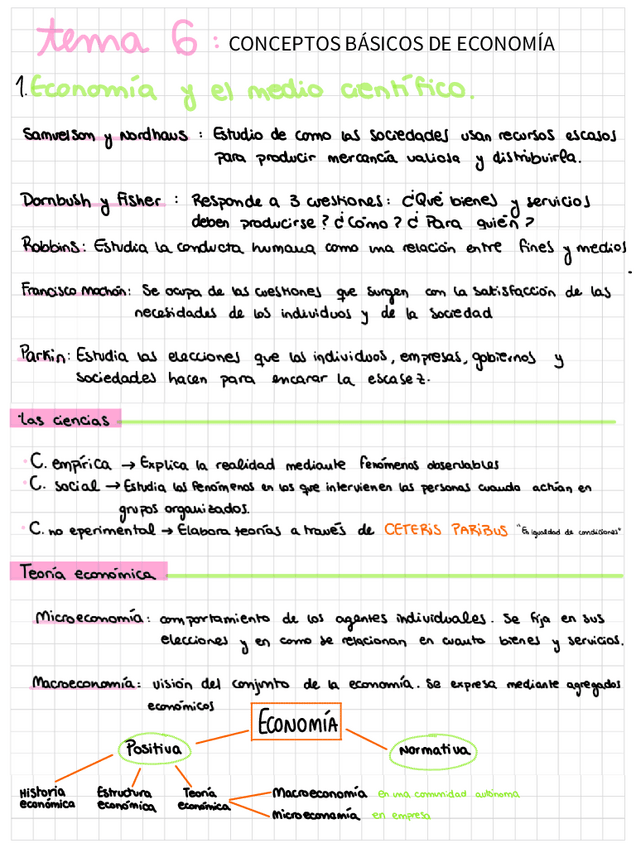 tema 6: CONCEPTOS BÁSICOS DE ECONOMÍA
1. Economía y el medio científico.
Samuelson y Nordhaus: Estudio de como las sociedades usan recursos escasos
para producir mercancía valiosa y distribuirla.
Dornbush y Fisher: Responde a 3 cuestiones: ¿Qué bienes y servicios
deben producirse? ¿Cómo? ¿Para quién?
Robbins: Estudia la conducta humana como una relación entre fines y medios.
Francisco Mochón: Se ocupa de las cuestiones que surgen con la satisfacción de las
necesidades de los individuos y de la sociedad
Parkin: Estudia las elecciones que los individuos, empresas, gobiernos y
sociedades hacen para encarar la escasez.
Las ciencias
· C. empírica → Explica la realidad mediante fenómenos observables
· C. social → Estudia los fenómenos en los que intervienen las personas cuando actúan en
grupos organizados.
· C. no eperimental → Elabora teorías a través de CETERIS PARIBUS "En igualdad de condiciones"
Teoría económica
Microeconomía: comportamiento de los agentes individuales. Se fija en sus
elecciones y en como se relacionan en cuanto bienes y servicios.
Macroeconomía: visión del conjunto de la economía. Se expresa mediante agregados
económicos
ECONOMÍA
Positiva
Normativa
Historia económica
Estructura económica
Teoría económica
Macroeconomía en una comunidad autónoma
Microeconomía en empresa